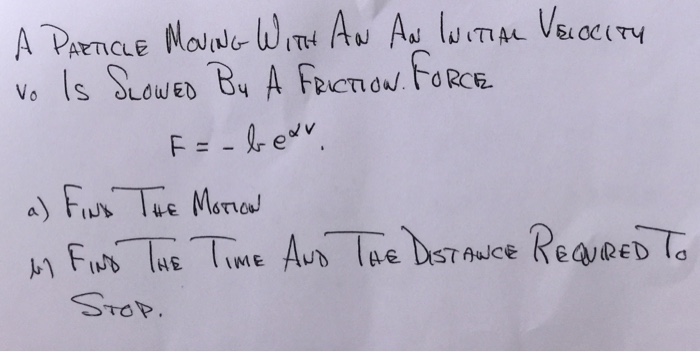 A PARTICLE MOVING WITH AN AN INITIAL VELOCITY
v₀ IS SLOWED BY A FRICTION. FORCE
F = - b e^{αv}.
a) FIND THE MOTION
b) FIND THE TIME AND THE DISTANCE REQUIRED TO
STOP.